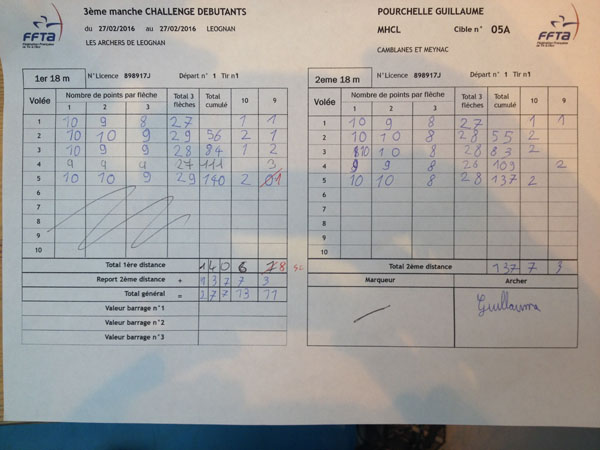 FFTA
3ème manche CHALLENGE DEBUTANTS
du 27/02/2016 au 27/02/2016 LEOGNAN
LES ARCHERS DE LEOGNAN
POURCHELLE GUILLAUME
MHCL Cible n° 05A
CAMBLANES ET MEYNAC
FFTA
1er 18 m N°Licence 898917J Départ n° 1 Tir n1
Volée Nombre de points par flèche Total 3 flèches Total cumulé 10 9
1 2 3
1 10 9 8 27 1 1
2 10 10 9 29 56 2 1
3 10 9 9 28 84 1 2
4 9 9 9 27 111 3
5 10 10 9 29 140 2 01
6
7
8
9
10
Total 1ère distance 140 6 8
Report 2ème distance + 137 7 3
Total général = 277 13 11
Valeur barrage n°1
Valeur barrage n°2
Valeur barrage n°3
2eme 18 m N°Licence 898917J Départ n° 1 Tir n1
Volée Nombre de points par flèche Total 3 flèches Total cumulé 10 9
1 2 3
1 10 9 8 27 1 1
2 10 10 8 28 55 2
3 10 10 8 28 83 2
4 9 9 8 26 109 2
5 10 10 8 28 137 2
6
7
8
9
10
Total 2ème distance 137 7 3
Marqueur Archer
Guillaume